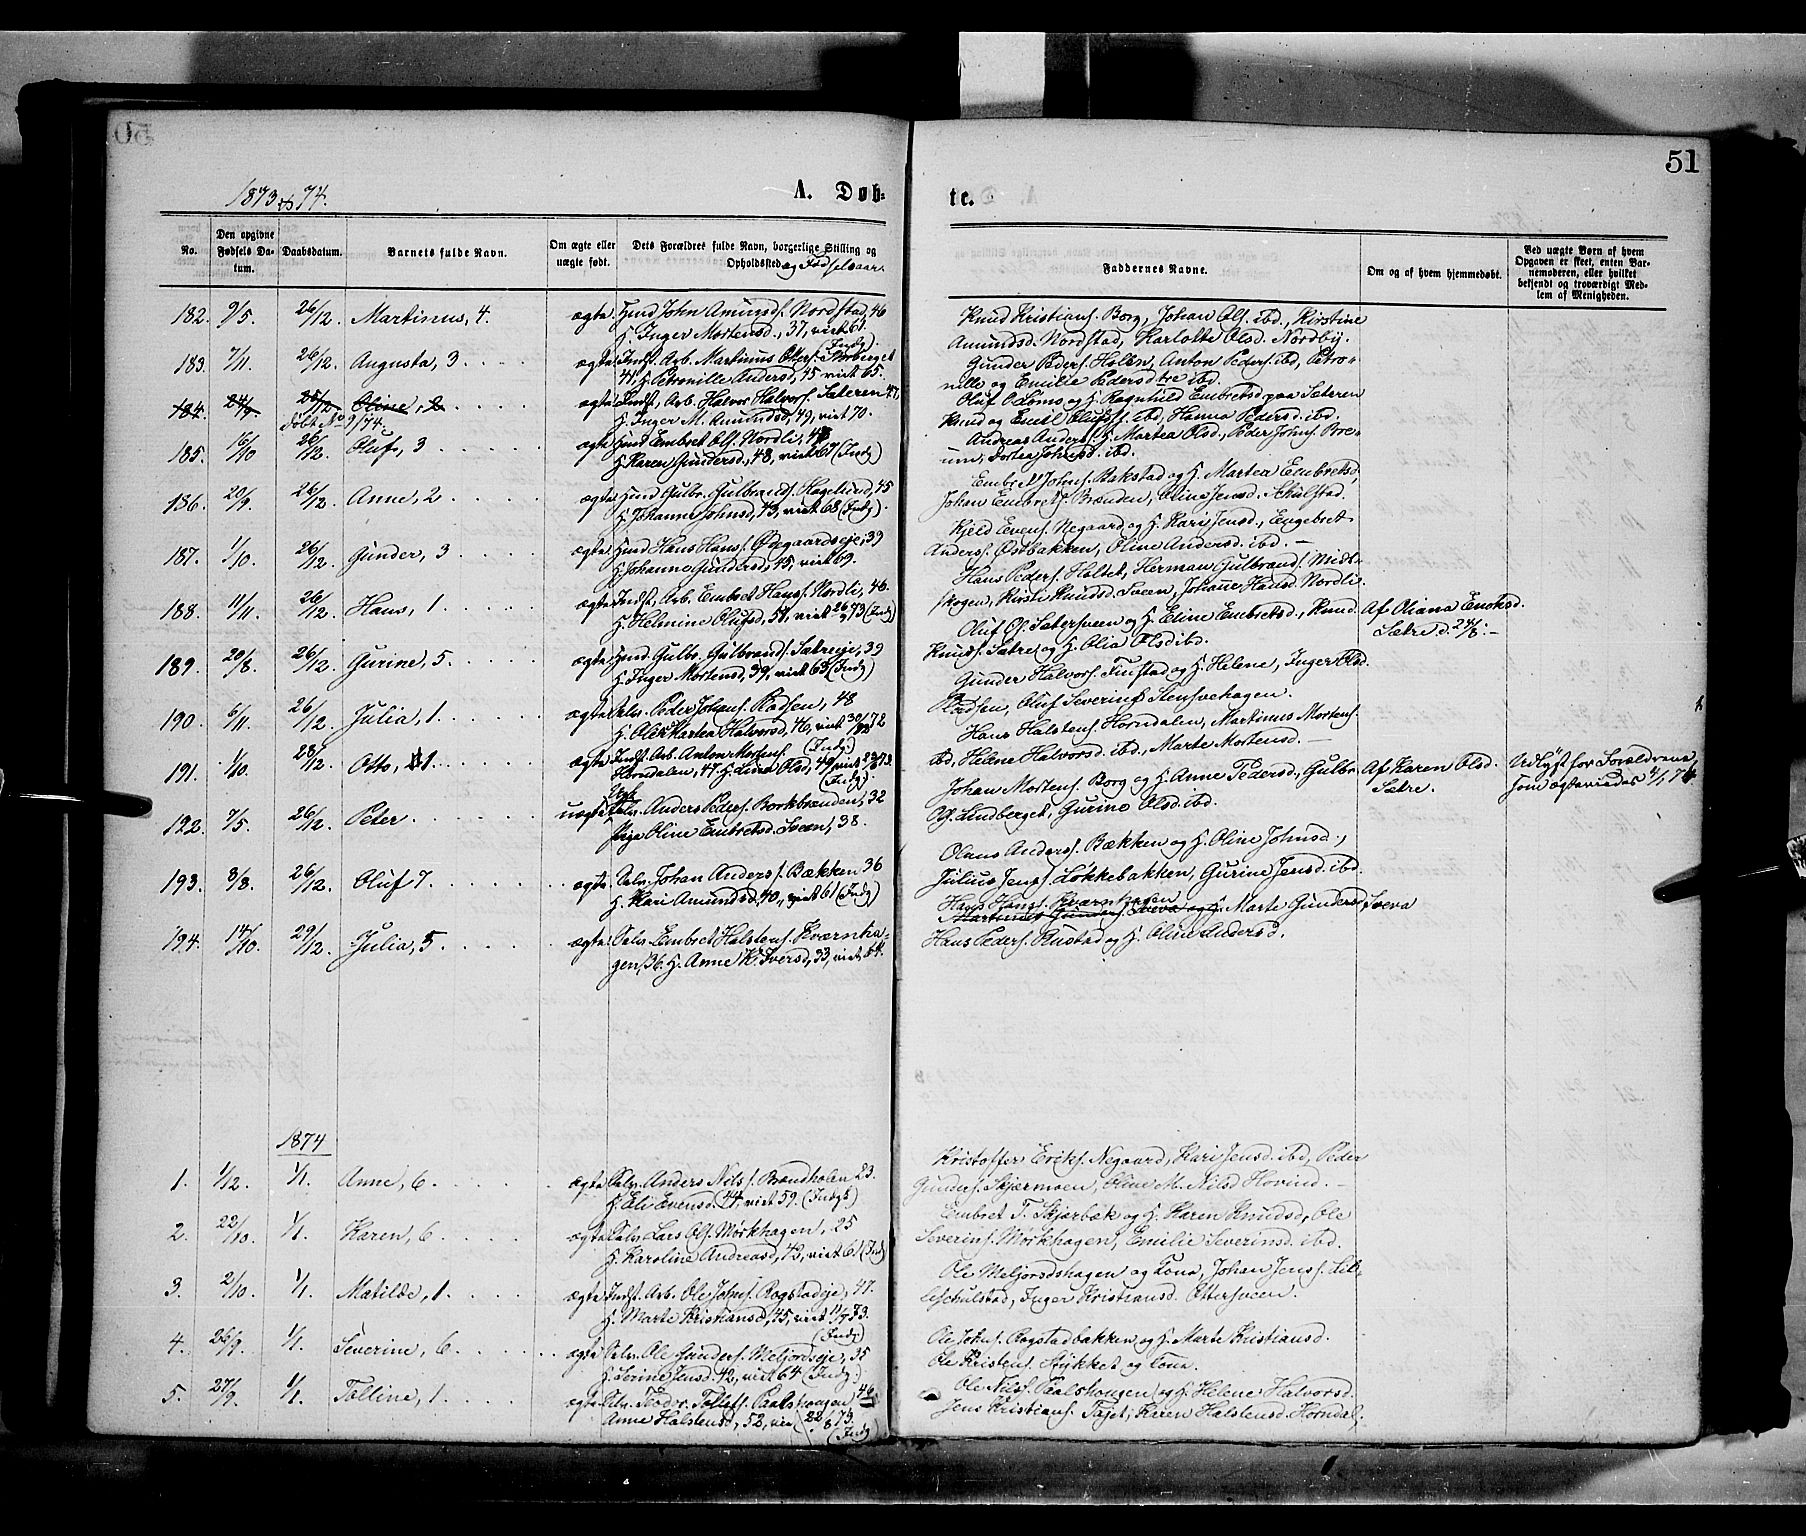 50
51
1873 & 74.
A. Døb-
te.
No.
Den opgivne Fødsels Da-tum.
Daabsdatum.
Barnets fulde Navn.
Om ægte eller uægte født.
Dets Forældres fulde Navn, borgerlige Stilling og Opholdssted og Fødselsaar.
Faddernes Navne.
Om og af hvem hjemmedøbt.
Ved uægte Børn af hvem Opgaven er skeet, enten Bar-nemoderen, eller hvilket bekjendt og troværdigt Med-lem af Menigheden.
182. 9/5. 26/12. Martinus, 4. ægte Hmd John Amunds. Nordstad, 46
H. Inger Mortensd., 37, viet 61. (Indg.)
Knud Kristians. Borg, Johan Ols. ibd., Kirstine
Amundsd. Nordstad, Karlotte Olsd. Nordby.
183. 7/11. 26/12. Augusta, 3 ægte Indst. Arb. Martinus Otters.
41, H. Petronille Andersd., 45 viet 65.
Gunder Peders. Holen, Anton Peders. ibd., Petro-
nille og Emilie Pedersdtre ibd.
184. 24/9. 25/12. Oline, 2 ægte Indst. Arb. Halvor Halvors. Sæteren 47,
Døbt No 9/74.
H. Inger M. Amundsd., 49, viet 70.
Oluf O. Lømo og H. Ragnhild Embretsd. paa Sæteren
Knud og Emil Olufs. ibd., Hanna Pedersd. ibd.
185. 16/10 26/12. Oluf, 3 ægte Hmd Embret Ols. Nordli, 47
H. Karen Gundersd., 48, viet 67 (Indg)
Andreas Anders. H. Martea Olsd., Peder Johns. Bre-
um, Dortea Johnsd. ibd.
186. 20/9. 26/12 Anne, 2 ægte Hmd Gulbr. Gulbrands. Hagelund, 45
H. Johanne Johnsd., 43, viet 68 (Indg).
Embret Johns. Bakstad og H. Martea Embretsd.
Johan Embrets. Brænden, Oline Jensd. Skulstad.
187. 1/10. 26/12. Gunder, 3 ægte Hmd Hans Hans. Ødegaardseje, 39
H. Johanne Gundersd., 45, viet 69.
Kjeld Evens. Negaard og H. Kari Jensd., Engebret
Anders. Østbakken, Oline Andersd. ibd. —
188. 11/11. 26/12. Hans, 1 ægte Indst. Arb. Embret Hans. Nordli, 46.
H. Helmine Olufsd., 51, viet 26/ 73 (Indg)
Hans Peders. Holtet, Herman Gulbrans. Midt-
skogen, Kirsti Knudsd. Sveen, Johanne Hansd. Nordli
Af Oliana Knutsd.
Sætre d. 24/8. —
189. 20/8. 26/12. Gurine, 5. ægte Hmd Gulbr. Gulbrands. Sætreeje, 39
H. Inger Mortensd., 39, viet 63 (Indg)
Oluf O. Sætersveen og H. Eline Embretsd., Knud
Knuts. Sætre og H. Olia Olsd. ibd.
190. 6/11. 26/12. Julia, 1. ægte Selv. Peder Johans. Kadsen, 48
H. Martea Halvorsd., 46, viet 30/ 72 (Indg.)
Gunder Halvors. Finstad og H. Helene, Inger Olsd.
Kadsen, Oluf Severins. Stensvehagen.
191. 1/10. 28/12. Otto, 1. ægte Indst. Arb. Anton Mortens.
Horndalen, 47. H. Lina Olsd., 49, viet (Indg).
Hans Halstens. Horndalen, Martinus Mortens.
ibd, Helene Halvorsd. ibd., Marte Mortensd. —
Af Karen Olsd.
Sætre.
192. 7/5. 26/12. Peter uægte Selv. Anders Peders. Borkbrænden, 32
Pige Oline Embretsd. Sveen, 38.
Johan Mortens. Borg og H. Anne Pedersd., Gulbr.
O. Lindberget, Gurine Olsd. ibd.
Udlyst for Forældrene,
som ægteviedes 4/1 74.
193. 8/8. 26/12. Oluf 7. ægte Selv. Johan Anders. Bækken 36
H. Kari Amundsd. 40, viet 61 (Indg)
Olaus Anders. Bækken og H. Oline Johnsd.,
Julius Jens. Løkkebakken, Gurine Jensd. ibd.
194. 14/10. 29/12. Julia, 5. ægte Selv. Embret Halstens. Kværnha-
gen, 36. H. Anne K. Iversd., 33, viet 54.
Hans Hans. Kværnhagen
Martinus Gunders. Sveva og H. Marte Gundersd. Sveva
Hans Peders. Rustad og H. Oline Andersd.
1874
1. 1/12. 1/1. Anne, 6. ægte Selv. Anders Nils. Brændholen 23.
H. Eli Evensd. 44, viet 59. (Indgk)
Kristoffer Eriks. Negaard, Kari Jensd. ibd., Peder
Gunders. Skjærmoen, Oline M. Nilsd. Hovind. —
2. 22/10. 1/1. Karen, 6. ægte Selv. Lars Ols. Mørkhagen, 25
H. Karoline Andreasd., 43, viet 61 (Indg)
Embret T. Skjærbæk og H. Karen Knudsd., Ole
Severins. Mørkhagen, Emilie Severinsd. ibd.
3. 2/10. 1/1. Matilde, 1. ægte Indst. Arb. Ole Johns. Rogstadeje, 47.
H. Marte Kristiansd., 45, viet 11/7 73. (Indg)
Ole Meljordshagen og Kona, Johan Jenss. Lil-
leskulstad, Inger Kristiansd. Ottersveen.
4. 26/9. 1/1. Severine, 6. ægte Selv. Ole Gunders. Meljordseje, 35
H. Serine Jensd. 42, viet 64 (Indg.)
Ole Johns. Rogstadbakken og H. Marte Kristiansd.
Ole Kristens. Stykket og Kona.
5. 27/9. 1/1. Tolline, 1. ægte Selv. Tollef. Paalshougen 46
Anne Halstensd., 52, viet 22/8 73. (Indg)
Ole Nils. Paalshougen og H. Helene Halvorsd.
Jens Kristians. Tajet, Karen Halstensd. Horndal.